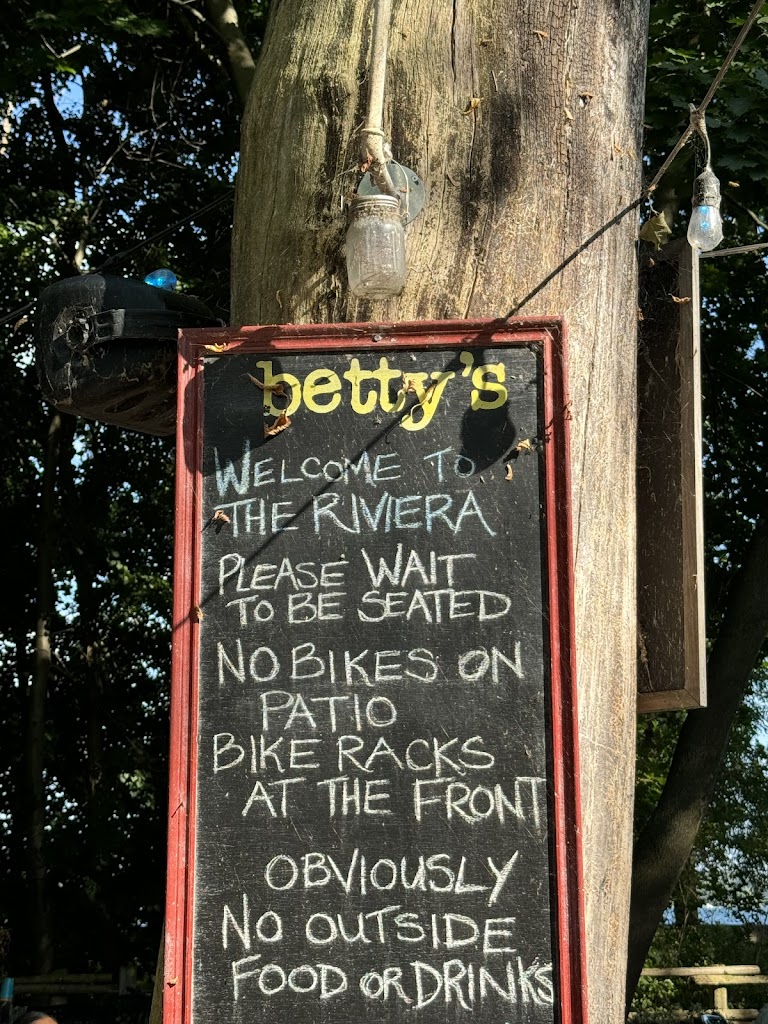 betty's
WELCOME TO
THE RIVIERA
PLEASE WAIT
TO BE SEATED
NO BIKES ON
PATIO
BIKE RACKS
AT THE FRONT
OBVIOUSLY
NO OUTSIDE
FOOD OR DRINKS